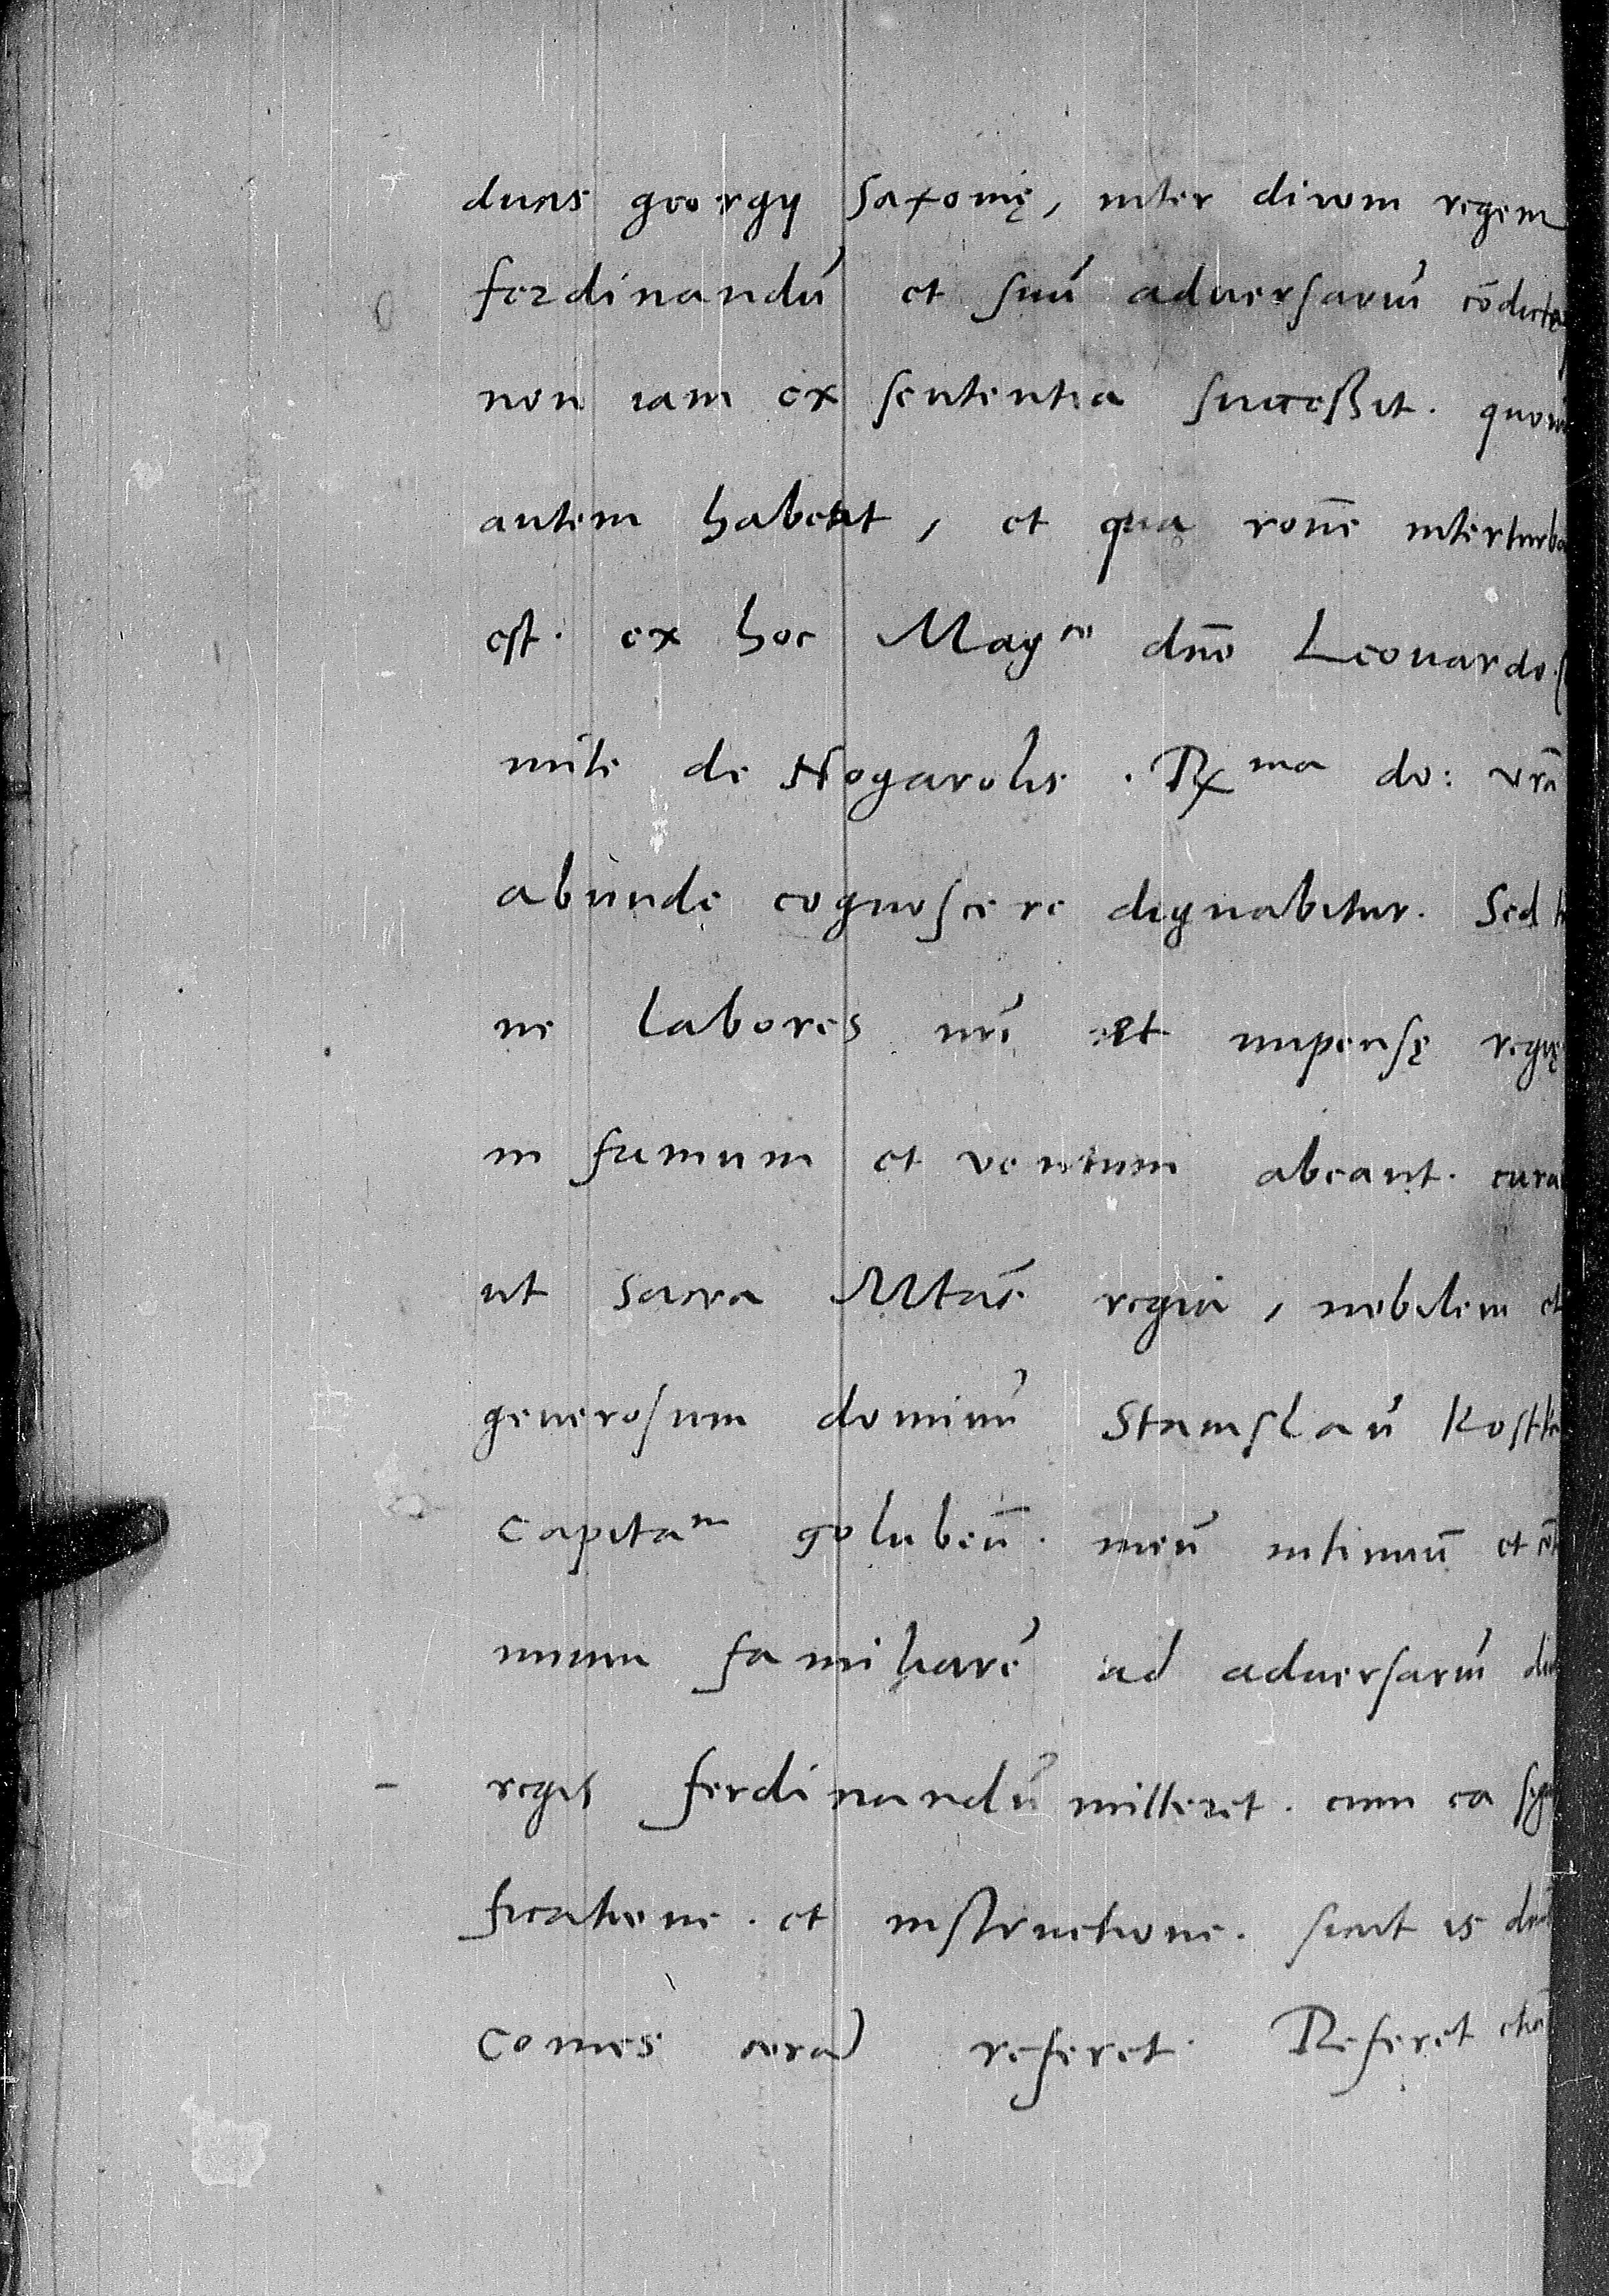 ducis georgÿ Saxonię, inter divum regem
ferdinandū et suū aduersariū cōducta
non iam ex sententia successit. quom
autem habeat, et qua rōne interturba
est. ex hoc Mag^co dno Leonardo
mite de Nogarolis. Rx^ma do: vra
abunde cognoscere dignabitur. Sed
ne labores nri et impensę regię
in fumum et ventum abeant. cura
ut sacra Mtas regia, nobilem et
generosum dominū Stanislaū Kostka
Capita^m golubeñ. meū intimū et
mum familiarē ad aduersariū
regis ferdinandū mitteret. cum ea sig
ficatione. et instructione. sicut is
comes coram referet. Referet etiā